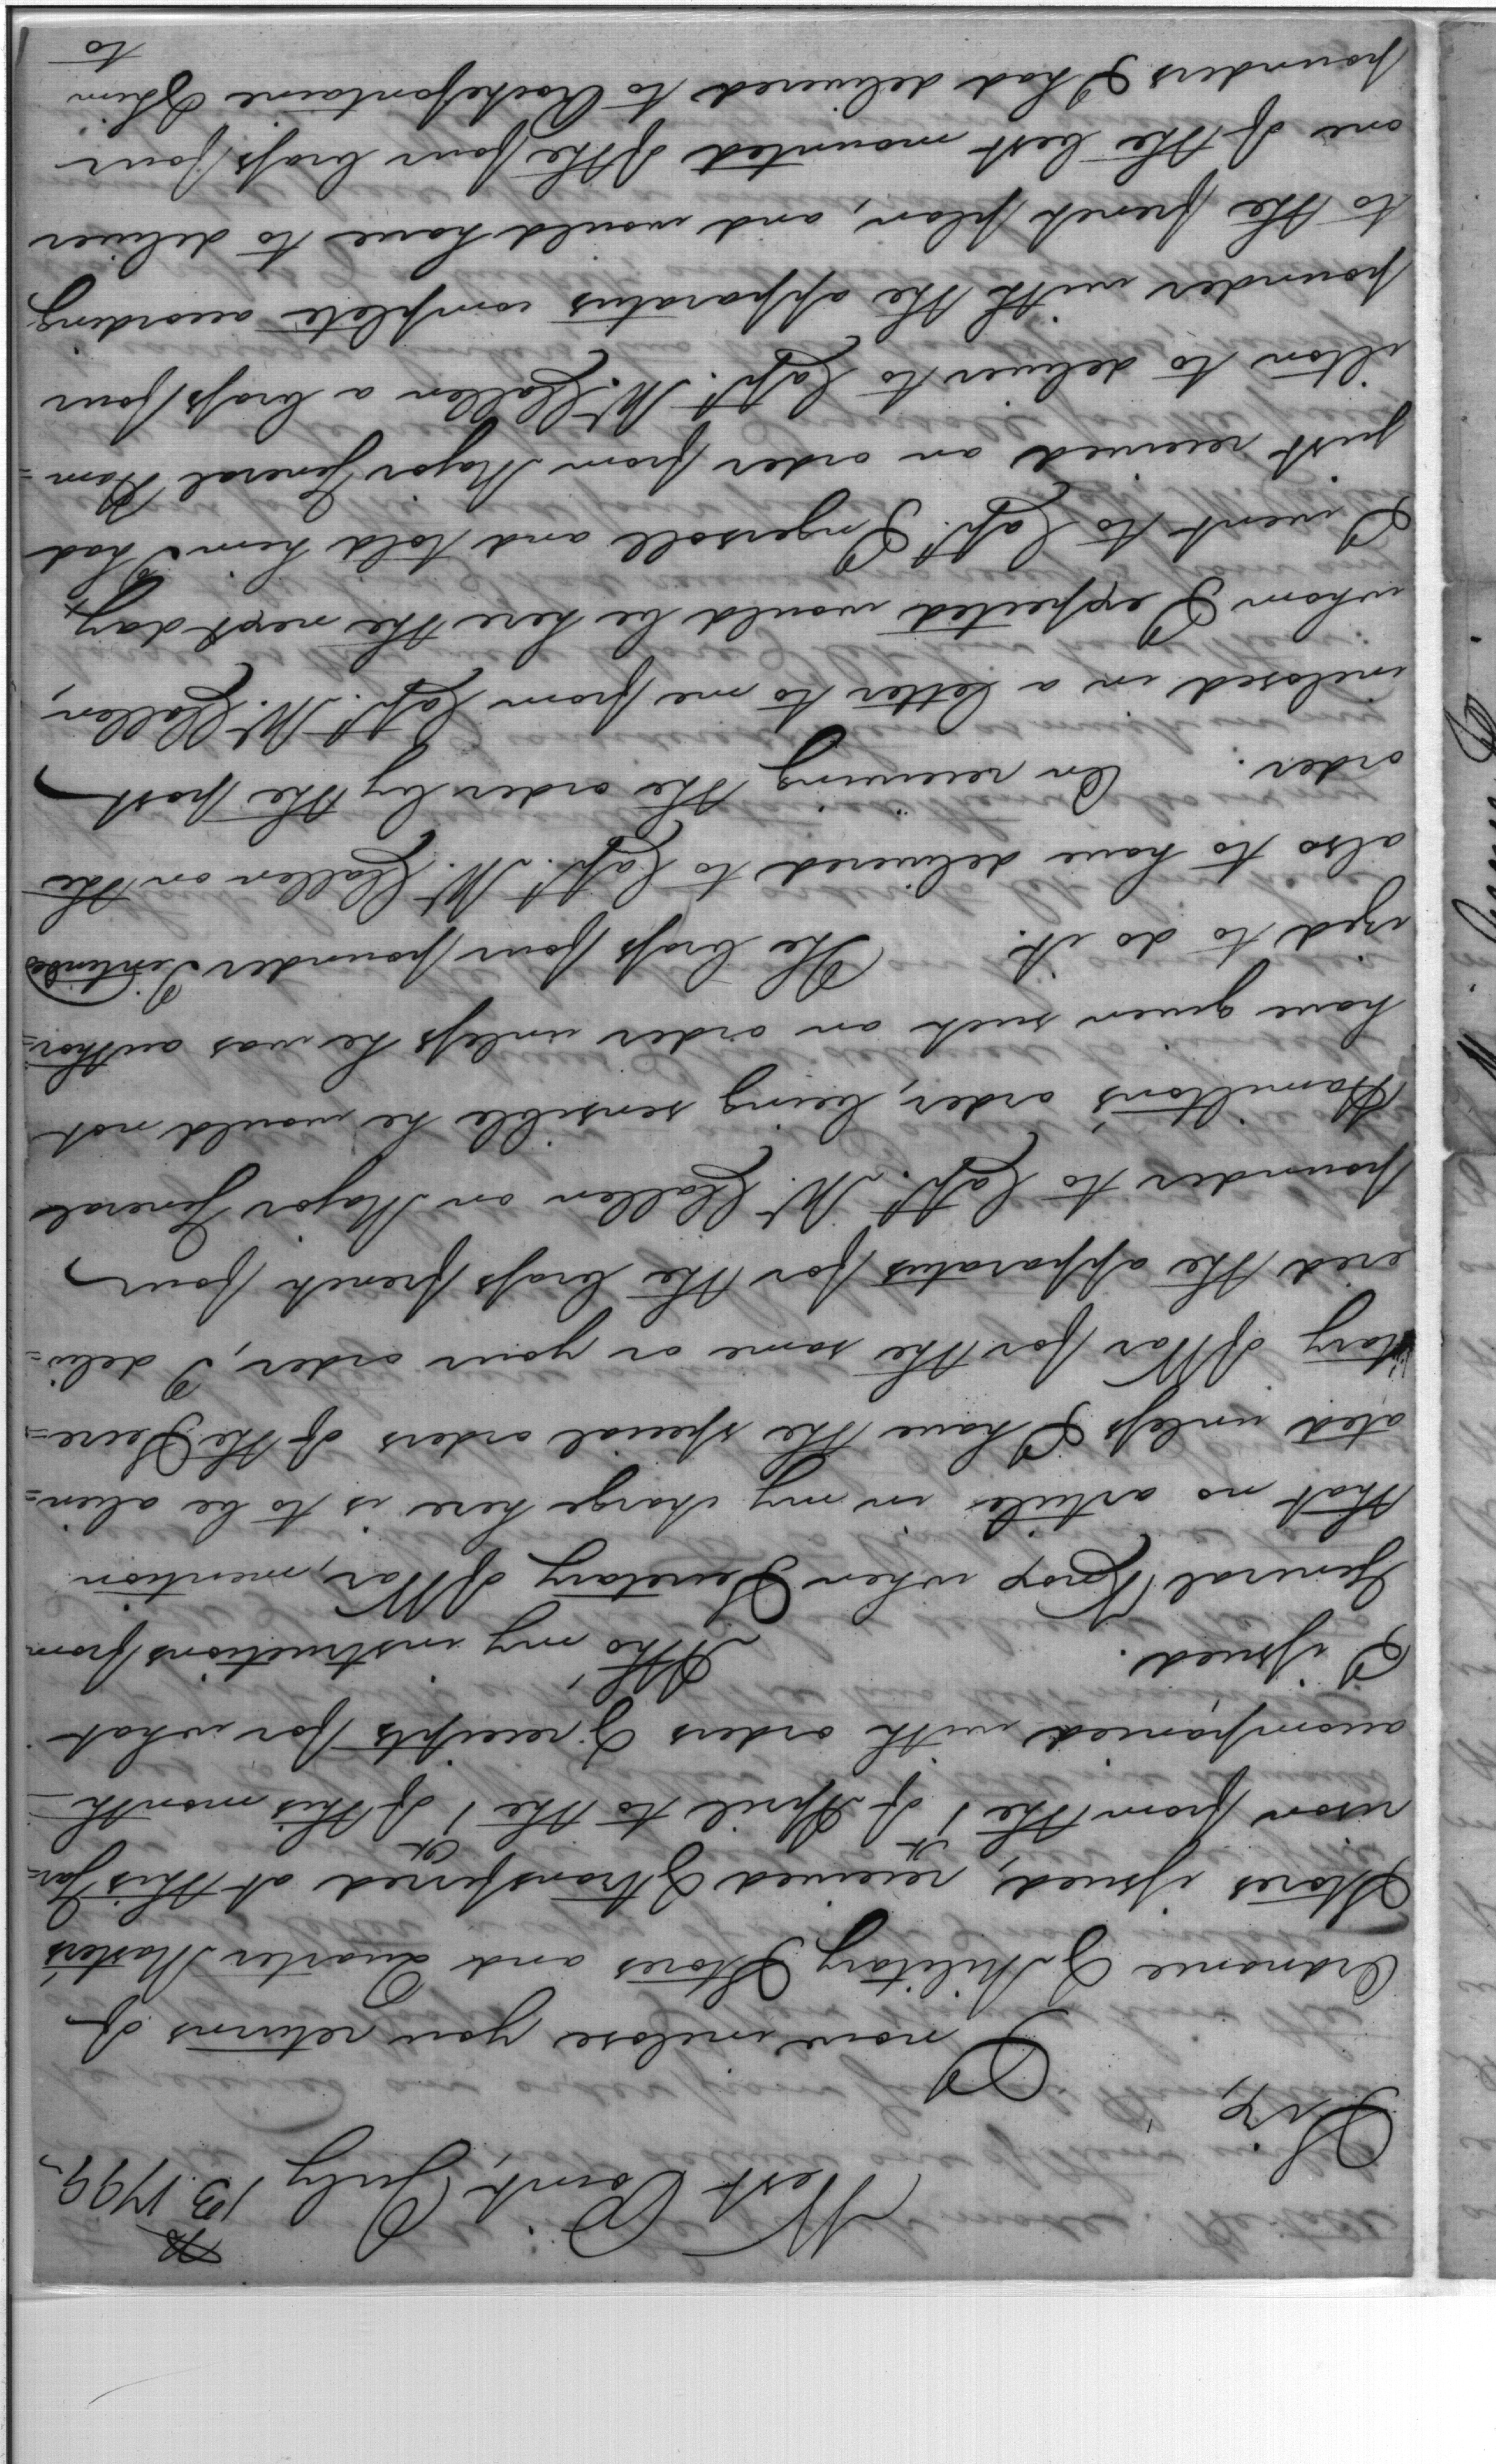 West Point, July 13th 1799.
Sir,
I now inclose you returns of
Ordnance & Military Stores and Quarter Masters
Stores issued, received & transferred at this Gar=
rison from the 1st of April to the 1st of this month
accompanied with orders & receipts for what
I issued. Altho' my instructions from
General Knox when Secretary of War, mention
that no article in my charge here is to be alien=
ated unless I have the special orders of the Secre=
tary of War for the same or your order, I deliv=
ered the apparatus for the brass french four
pounder to Capt. McClallen on Major General
Hamilton's order, being sensible he would not
have given such an order unless he was author=
ized to do it. The brass four pounder I intended
also to have delivered to Capt. McClallen on the
order. On receiving the order by the post
inclosed in a letter to me from Capt. McClallen,
whom I expected would be here the next day,
I went to Capt. Ingersoll and told him I had
just received an order from Major General Ham=
ilton to deliver to Capt. McClallen a brass four
pounder with the apparatus complete according
to the french plan, and would have to deliver
one of the best mounted of the four brass four
pounders I had delivered to Rochefontaine & him
to